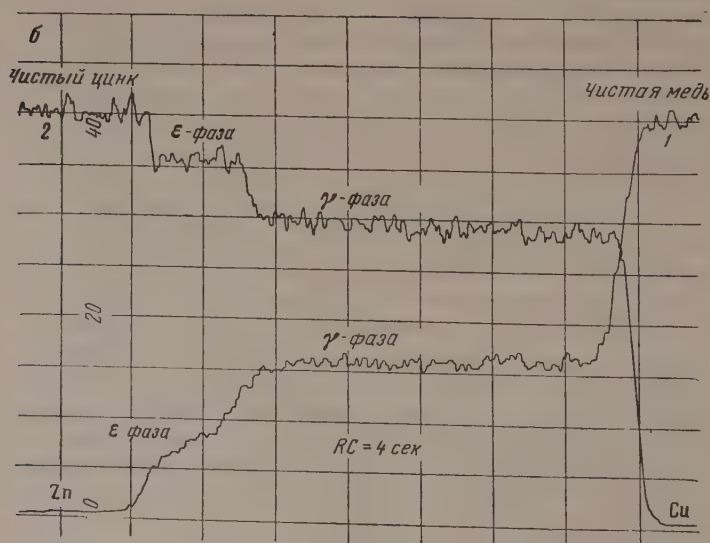 б
Чистый цинк
Чистая медь
2
40
ε-фаза
1
γ-фаза
20
γ-фаза
ε фаза
RC = 4 сек
Zn
0
Cu